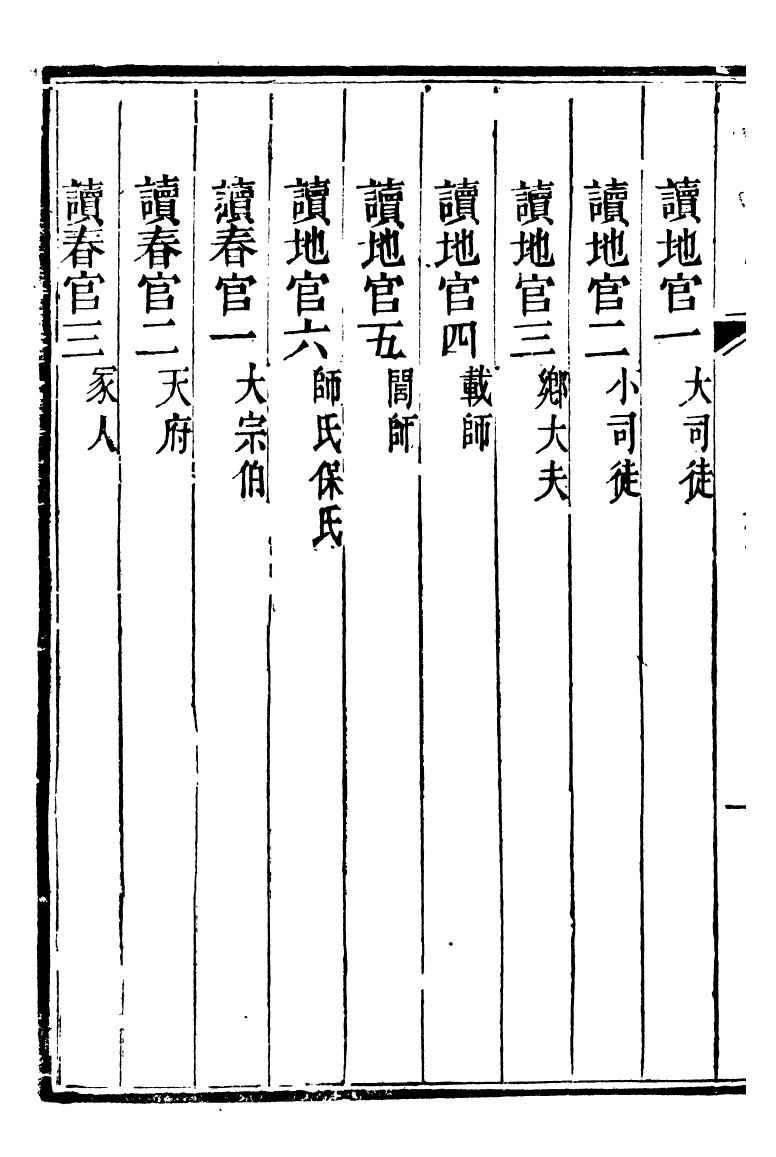 讀地官一 大司徒
讀地官二 小司徒
讀地官三 鄉大夫
讀地官四 載師
讀地官五 閭師
讀地官六 師氏保氏
讀春官一 大宗伯
讀春官二 天府
讀春官三 冢人